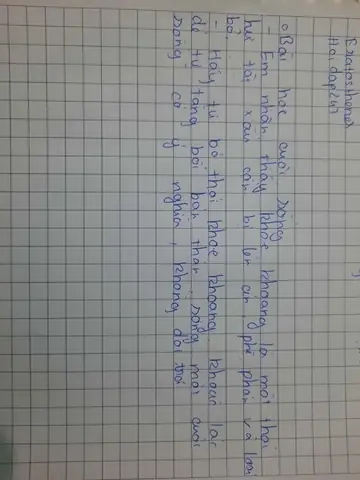 Eratosthenes
Hỏi đáp 247
o Bài học cuối sống
- Em nhận thấy khoe khoang là một thói
hư tật xấu cần bị lên án, phê phán và loại
bỏ.
- Hãy từ bỏ thói khoe khoang, khoác lác
để tự tang bồi bản thân, sống một cuộc
sống có ý nghĩa, không dối trá